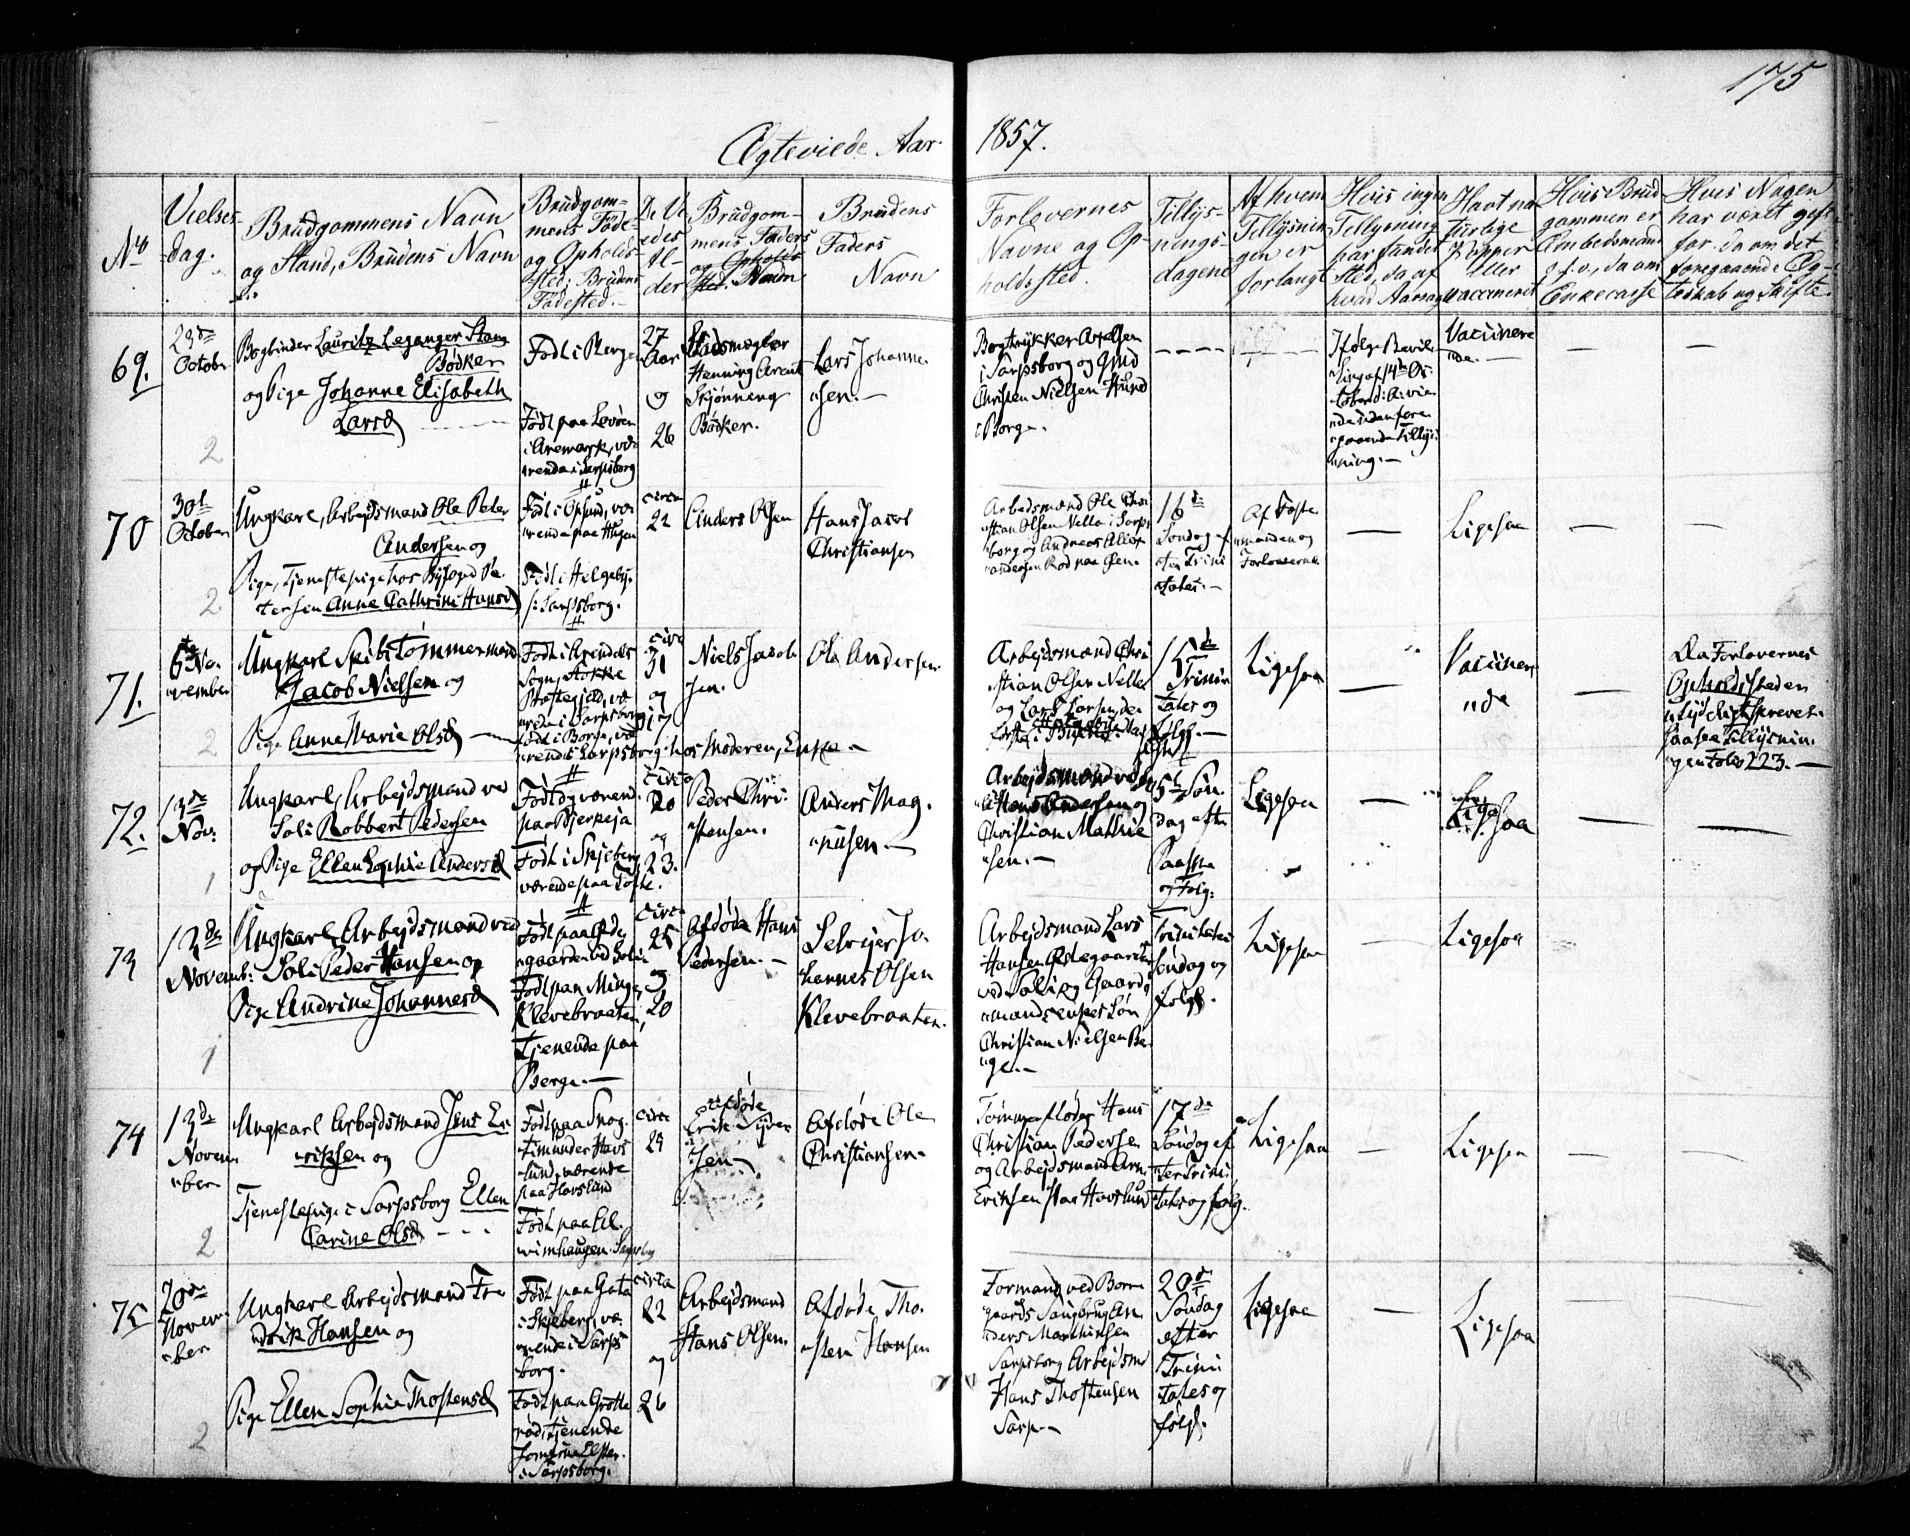 175
Ægteviede Aar 1857.
No
Vielses-
dag.
Brudgommens Navn
og Stand, Brudens Navn
Brudgom-
mens Føde-
og Opholds-
sted; Brudens
Fødested.
De Vi
edes
Al-
der
Brudgom-
mens Faders
Navn
Brudens
Faders
Navn
Forlovernes
Navne og Op-
holdssted.
Tillys-
nings-
dagene
Af hvem
Tillysnin
gen er
forlangt
Hvis ingen
Tillysning
har fundet
Sted, da af
hvad Aarsag
Havt na
turlige
Kopper
eller
vaccineret
Hvis Brud
gommen er
Embedsmand
da om
Enkecasse
Hvis Nogen
har været gift
før da om det
foregaaende Æg-
teskab og Skifte.
69.
23de
October
Bogbinder Lauritz Leganger Stang
Bødker
og Pige Johanne Elisabeth
Larsd
2
Født i Bergen
Født paa
i Aremark, væ
rende i Sarpsborg
27
Aar
og
26
Henning Arent
Skjønning
Bødker.
Lars Johanne-
sen.
Bogtrykker Axelsen
i Sarpsborg og
Christen Nielsen Hund
i Borge.
Ifølge Bevil-
ling af 14de Oc-
tober d: A: vie
de uden fore
gaaende Tillys
ning.
Vaccinere
de.
70
30te
October
Ungkarl, Arbejdsmand Ole Peter
Andersen og
Pige, Tjenestepige hos Byfoged Pe-
tersen Anne Cathrine Hansd
2
Født i Opsund, væ
rende paa Haugen
Født i Helgeby.
i Sarpsborg.
circa
22
Anders Olsen
Hans Jacob
Christiansen
Arbejdsmand Ole Chri
stian Olsen Nelle i Sarps
borg og Andreas
16de
Søndag ef
ter Trini
tates.
Af Fæste
manden og
Forloverne
Ligesaa
71.
6te No-
vember
Ungkarl Skibstømmermand
Jacob Nielsen og
Pige Anne Marie Olsd
2
Født i Arendals
Sogn, Stokke
Præstegjeld, væ
rende i Sarpsborg
Født i Borge, væ
rende i Sarpsborg hos Moderen, Enke
circa
31
og
17
Niels Jacob-
sen.
Ole Andersen
Arbejdsmand Chri
stian Olsen Nelle
og Lars Larsen
15de
Trini
tates og
følg.
Ligesaa
Vaccinere
de
Da Forlovernes
Opholdssteden
Folio 223.
72.
13de
Nov:
Ungkarl, Arbejdsmand ved
Soli Robbert Pedersen
og Pige Ellen Sophie Andersd
1
Født og værende
paa Bjerkeja
Født i Skjeberg
værende paa Tofte.
circa
20
og
23.
Peder Chri-
stensen.
Anders Mag-
nusen.
Arbejdsmand ved
Hans Andersen og
Christian Mathie
sen.
5te Søn-
dag efter
Paaske
og Følg:
Ligesaa
Ligesaa
73
13de
Novemb:
Ungkarl, Arbejdsmand ved
Soli Peder Hansen og
Pige Andrine Johannesd
1
Født paa Øde
gaarden ved Soli
Født paa Minge,
Klevebraaten,
Tjenende paa
Berge.
circa
25
og
20
Afdøde Hans
Pedersen.
Selvejer Jo-
hannes Olsen
Klevebraaten.
Arbejdsmand Lars
Hansen Ødegaarden
ved Soli og Gaard
mandsenkes Søn
Christian Nielsen Ber
ge.
Trinitatis
Søndag og
følgd.
Ligesaa
Ligesaa
74
13de
Novem
ber
Ungkarl Arbejdsmand Jens E-
riksen og
Tjenestepige i Sarpsborg Ellen
Carine Olsd
2
Født paa
under Hafs
lund, værende
paa Hafslund
Født paa
circa
29
Afdøde
Erik
sen
Afdøde Ole
Christiansen
Tømmerfløder Hans
Christian Pedersen
og Arbejdsmand Arn
Eriksen paa Hafslund
17de
Søndag ef
ter Trini
tates og følg.
Ligesaa
Ligesaa
75
20de
Novem
ber
Ungkarl Arbejdsmand Fre
drik Hansen og
Pige Ellen Sophie Thostensd
2
Født paa Gata
i Skjeberg, væ
rende i Sarps
borg.
Født paa Grotte
rød, Tjenende
i Sarpsborg.
circa
22
og
26
Arbejdsmand
Hans Olsen.
Afdøde Tho-
sten Hansen
Formand ved Borre
gaards Saugbrug An
ders Marthinsen
Sarpsborg Arbejdsm
Hans Thostensen
Sarp
20de
Søndag
efter
Trini
tates og
følg.
Ligesaa
Ligesaa